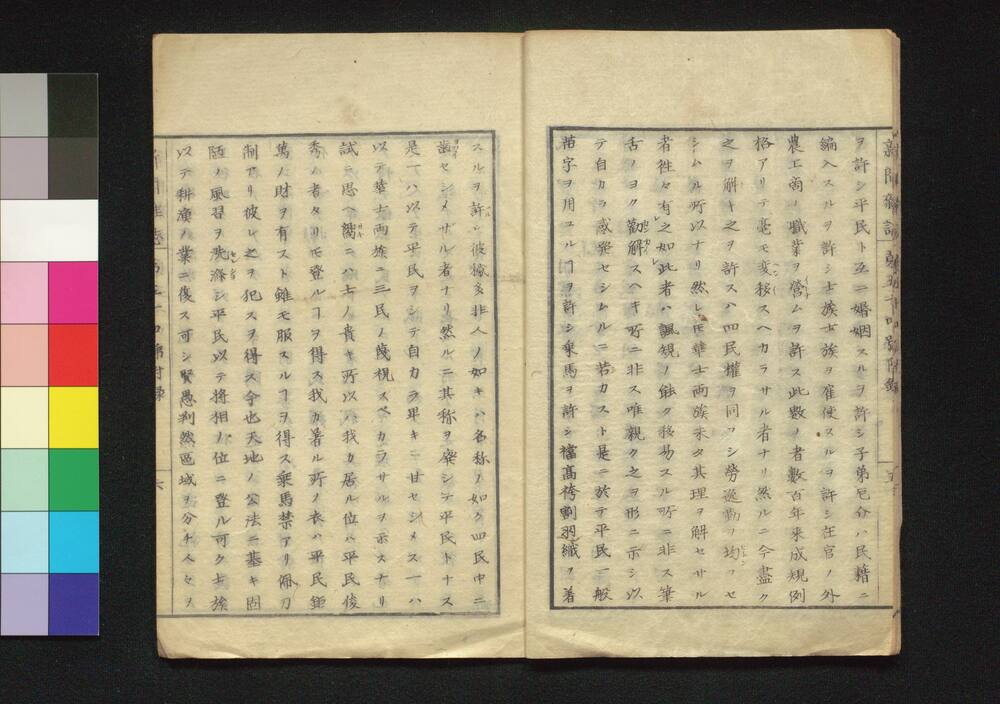 ヲ許シ平民ト互ニ婚姻スルヲ許シ子弟厄介ハ民籍ニ
編入スルヲ許シ士族士族ヲ雇使スルヲ許シ在官ノ外
農工商ノ職業ヲ營ムヲ許ス此数ノ者數百年来成規例
格アリテ毫モ変移スヘカラサル者ナリ然ルニ今盡ク
之ヲ解キ之ヲ許スハ四民權ヲ同フシ勞逸勤ヲ均フセ
シムル所以ナリ然レ𪜈華士両族未タ其理ヲ解セサル
者往々有之如此者ハ諷規ノ能ク移易スル所ニ非ス筆
舌ノヨク勸解スヘキ所ニ非ス唯親ク之ヲ形ニ示シ以
テ自カラ感発セシムルニ若カスト是ニ於テ平民一般
苗字ヲ用ユルヿヲ許シ乗馬ヲ許シ襠高袴割羽織ヲ着
スルヲ許シ彼穢多非人ノ如キハ名称ノ如ク四民中ニ
歯セシメサル者ナリ然ルニ其称ヲ廃シテ平民トナス
是一ハ以テ平民ヲシテ自カラ卑キニ甘セシメス一ハ
以テ華士両族ニ三民ノ蔑視スベカラサルヲ示スナリ
試ニ思ヘ嚮ニハ士ノ貴キ所以ハ我カ居ル位ハ平民俊
秀ノ者タリモ登ルヿヲ得ス我カ着ル所ノ衣ハ平民鉅
萬ノ財ヲ有スト雖モ服スルヿヲ得ス乗馬禁アリ佩刀
制アリ彼レ之ヲ犯スヲ得ス今也天地ノ公法ニ基キ固
陋ノ風習ヲ洗滌シ平民以テ将相ノ位ニ登ル可ク士族
以テ耕漁ノ業ニ復ス可シ賢愚判然區域ヲ分チ人セヲ